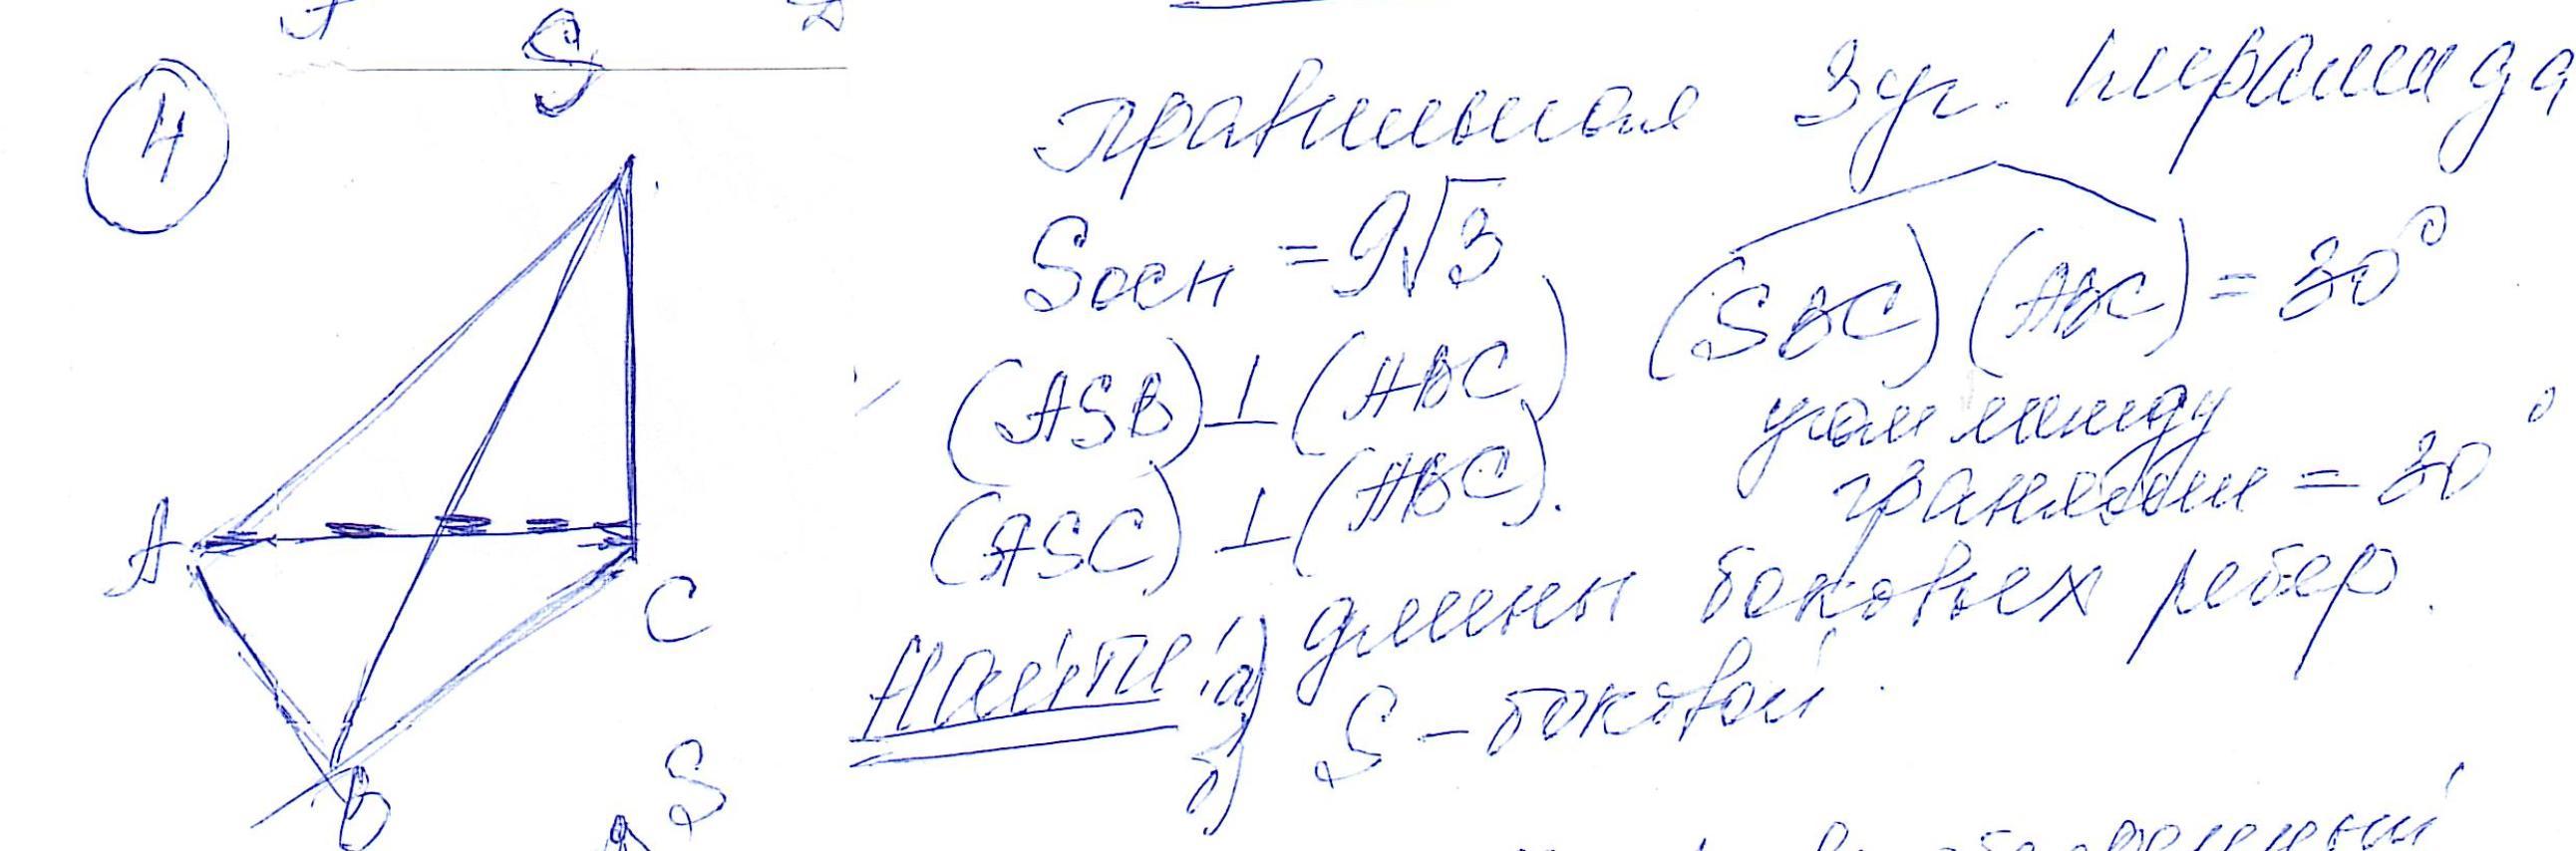 S
4
правильная 3 уг. пирамида
Sосн = 9√3
(SBC) (ABC) = 30°
(ASB) ⊥ (ABC)
угол между
гранями = 30°
(ASC) ⊥ (ABC).
Найти: а) длины боковых ребер.
б) S - боковой.
A
C
B
S